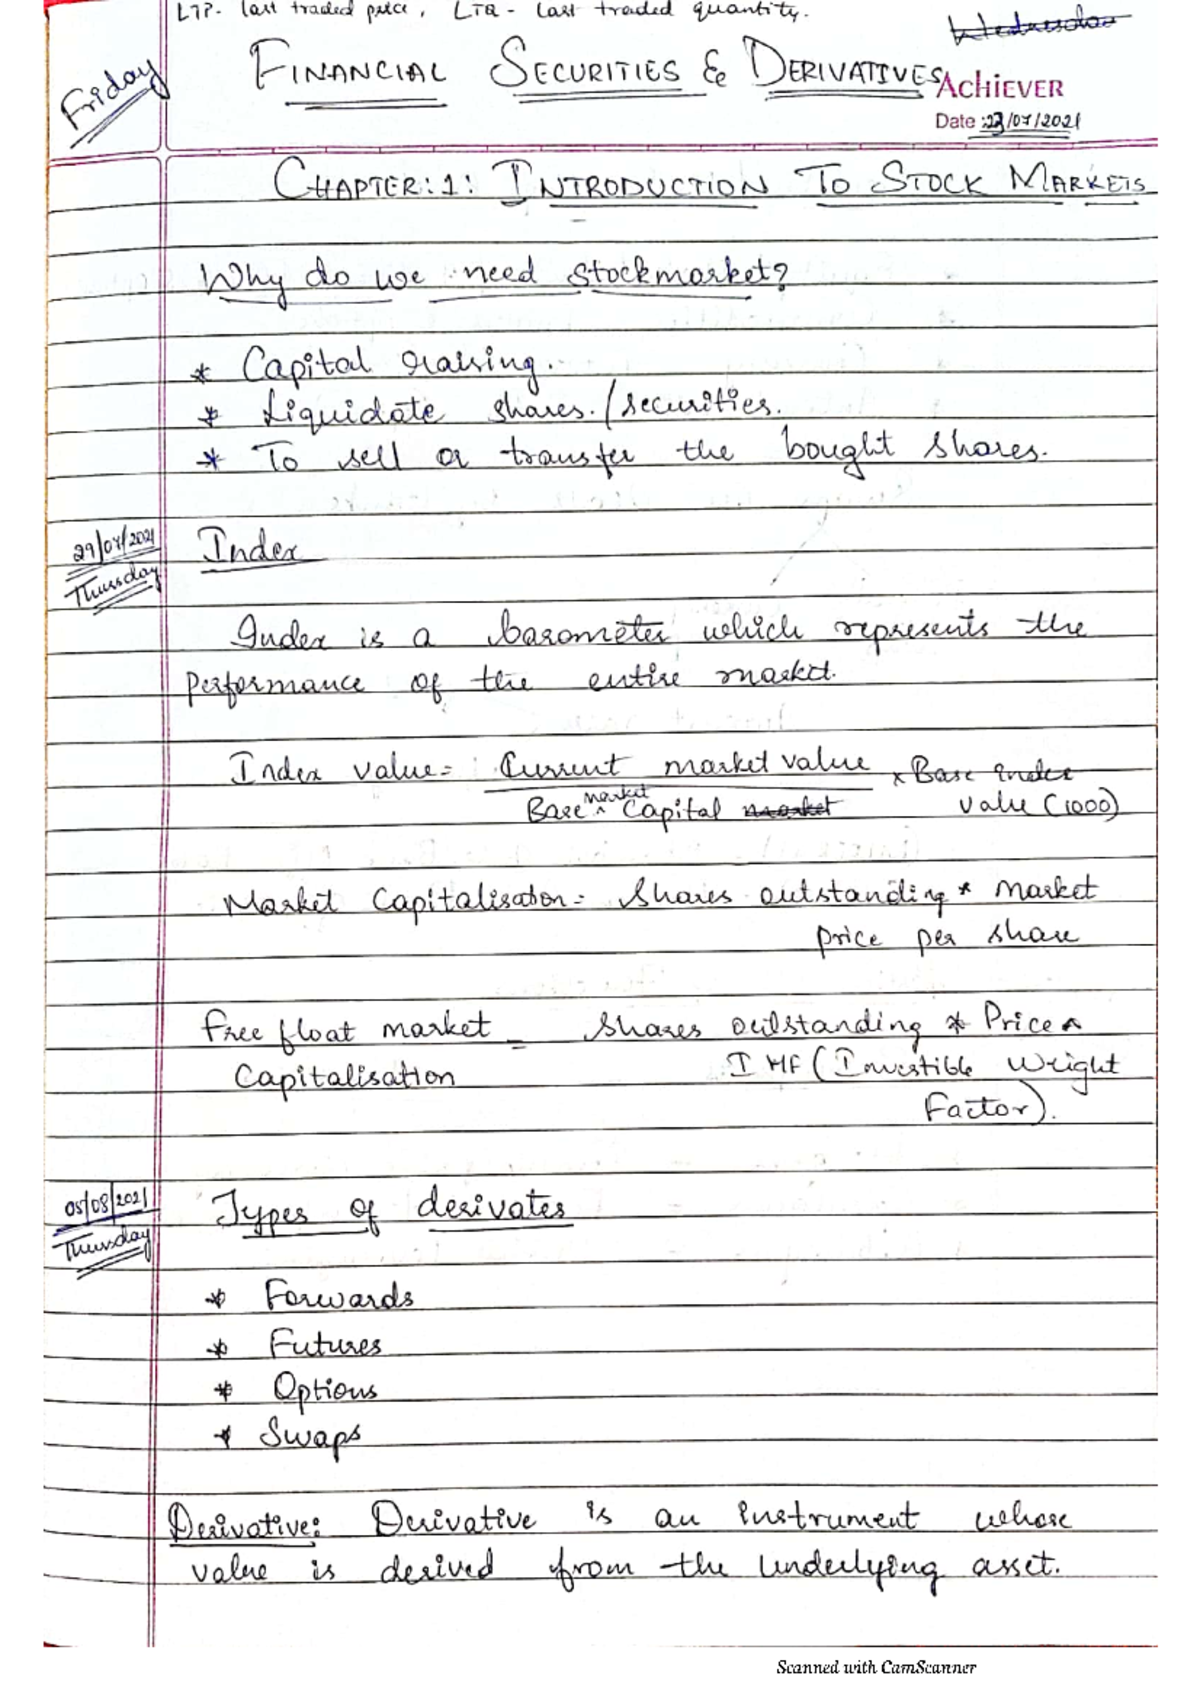 LTP- last traded price, LTQ - last traded quantity.
Wednesday
Friday
FINANCIAL SECURITIES & DERIVATIVES
AchiEVER
Date :23/07/2021
CHAPTER:1: INTRODUCTION TO STOCK MARKETS
Why do we need stockmarket?
* Capital raising.
* Liquidate shares./securities.
* To sell or transfer the bought shares.
29/07/2021
Thursday
Index
Index is a barometer which represents the
performance of the entire market.
Index value = Current market value × Base index
Base ^ market Capital market value (1000)
Market Capitalisation = Shares outstanding * Market
price per share
Free float market = Shares outstanding * Price *
Capitalisation IWF (Investible Weight
Factor).
05/08/2021
Thursday
Types of derivates
* Forwards
* Futures
* Options
* Swaps
Derivative: Derivative is an instrument whose
value is derived from the underlying asset.
Scanned with CamScanner